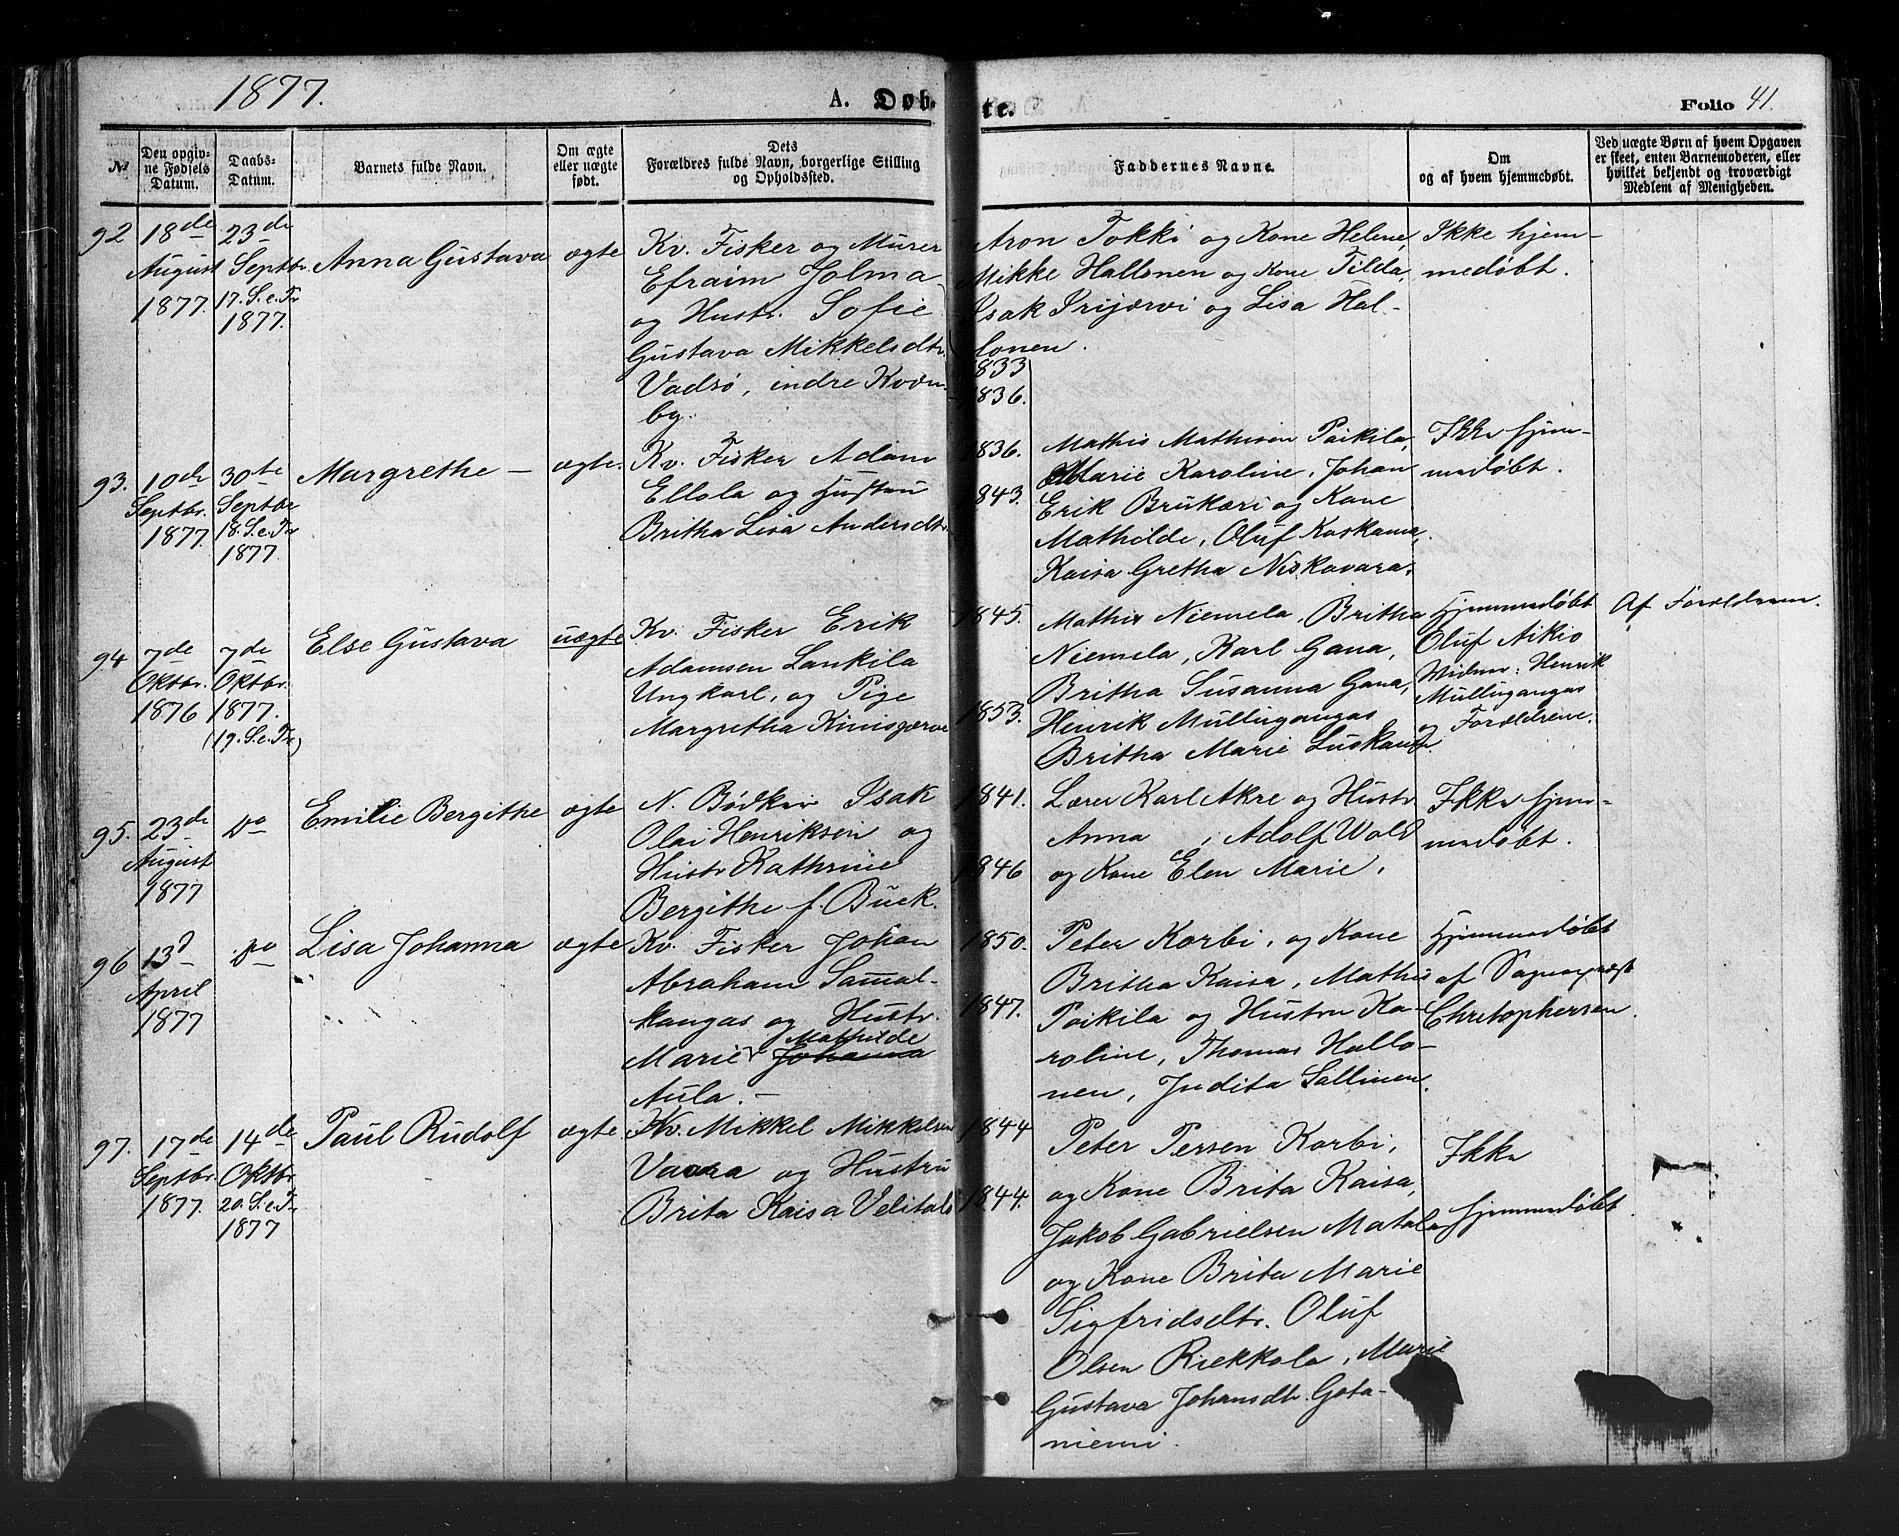 1877.
A. Døb-
te.
Folio 41.
№
Den opgiv-
ne Fødsels
Datum.
Daabs-
Datum.
Barnets fulde Navn.
Om ægte
eller uægte
født.
Dets
Forældres fulde Navn, borgerlige Stilling
og Opholdssted.
Faddernes Navne.
Om
og af hvem hjemmedøbt.
Ved uægte Børn af hvem Opgaven
er skeet, enten Barnemoderen, eller
hvilket bekjendt og troværdigt
Medlem af Menigheden.
92
18de
August
1877.
23de
Septbr.
17. S. e. Tr
1877.
Anna Gustava
ægte
Kv. Fisker og Murer
Efraim Jolma
og Hustr. Sofie
Gustava Mikkelsdtr.
Vadsø, indre Kvæn-
by.
1833
1836.
Aron Tokki og Kone Helene,
Mikke Hallonen og Kone Tilda,
Isak Irijærvi og Lisa Hal-
lonen.
Ikke hjem-
medøbt.
93.
10de
Septbr.
1877.
30te
Septbr
18. S. e. Tr
1877.
Margrethe —
ægte.
Kv. Fisker Adam
Ellola og Hustru
Britha Lisa Andersdtr.
1836.
1843.
Mathis Mathisen Poikila,
Marie Karoline, Johan
Erik Brukæri og Kone
Mathilde, Oluf Kaskama,
Kaisa Gretha Niskavara.
Ikke hjem-
medøbt.
94
7de
Oktbr.
1876
7de
Oktbr.
1877.
(19. S. e. Tr)
Else Gustava
uægte
Kv. Fisker Erik
Adamsen Lankila
Ungkarl, og Pige
Margretha Kinisjærve
1845.
1853.
Mathis Niemela, Britha
Niemela, Karl Gana,
Britha Susanna Gana,
Henrik Mullugangas
Britha Marie
Hjemmedøbt
Oluf Aikio
Widner: Henrik
Mullugangas
og Forældrene.
Af Forældrene.
95.
23de
August
1877
do
Emilie Bergithe
ægte
N. Bødker Isak
Olai Henriksen og
Hustr Kathrine
Bergithe f. Buck.
1841.
1846
Lærer Karl Akre og Hustr
Anna , Adolf Wold
og Kone Elen Marie.
Ikke hjem-
medøbt.
96
13d
April
1877
do
Lisa Johanna
ægte
Kv. Fisker Johan
Abraham Samal-
kangas og Hustr.
Mathilde
Marie Johanna
Aula. —
1850.
1847.
Peter Korbi, og Kone
Britha Kaisa, Mathis
Poikila og Hustru Ka-
roline, Thomas Hallo-
nen, Judita Sallinen.
Hjemmedøbt
af Sognepræst
Christophersen.
97.
17de
Septbr.
1877.
14de
Oktbr
20. S. e. Tr.
1877
Paul Rudolf
ægte
Kv. Mikkel Mikkelsen
Vaara og Hustru
Brita Kaisa Velitalo
1844
1844.
Peter Persen Korbi,
og Kone Brita Kaisa,
Jakob Gabrielsen Matala
og Kone Brita Marie
Sigfridsdtr. Oluf
Olsen Riekkola, Marie
Gustava Johansdtr. Gota-
niemi.
Ikke
hjemmedøbt.